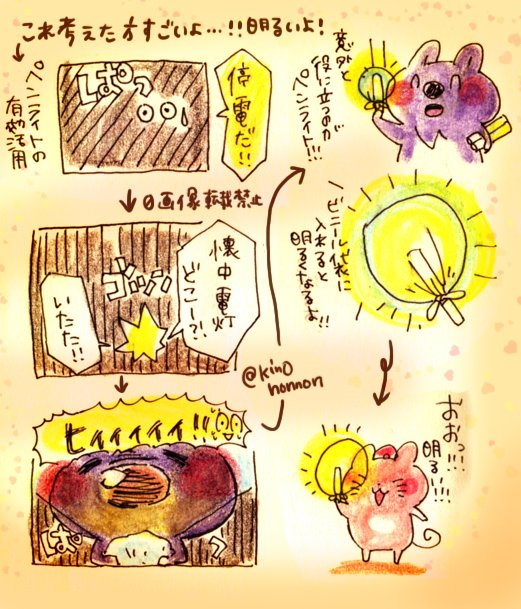 これ考えた方すごいよ…!!明るいよ!
ペンライトの
有効活用
ぱっ
停電だ!!
画像転載禁止
懐中電灯
どこー?!
ゴッ
いたた!!
ヒィィィィィ!!
ぱっ
@kino
nonnon
意外と
役に立つのが
ペンライト!!
ビニール袋に
入れると
明るくなるよ!!
おおっ!!!
明るい!!!